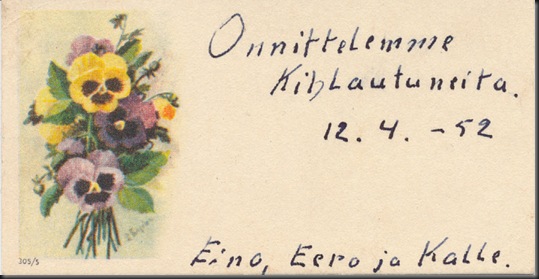 Onnittelemme
Kihlautuneita.
12. 4. -52
Eino, Eero ja Kalle.
305/5